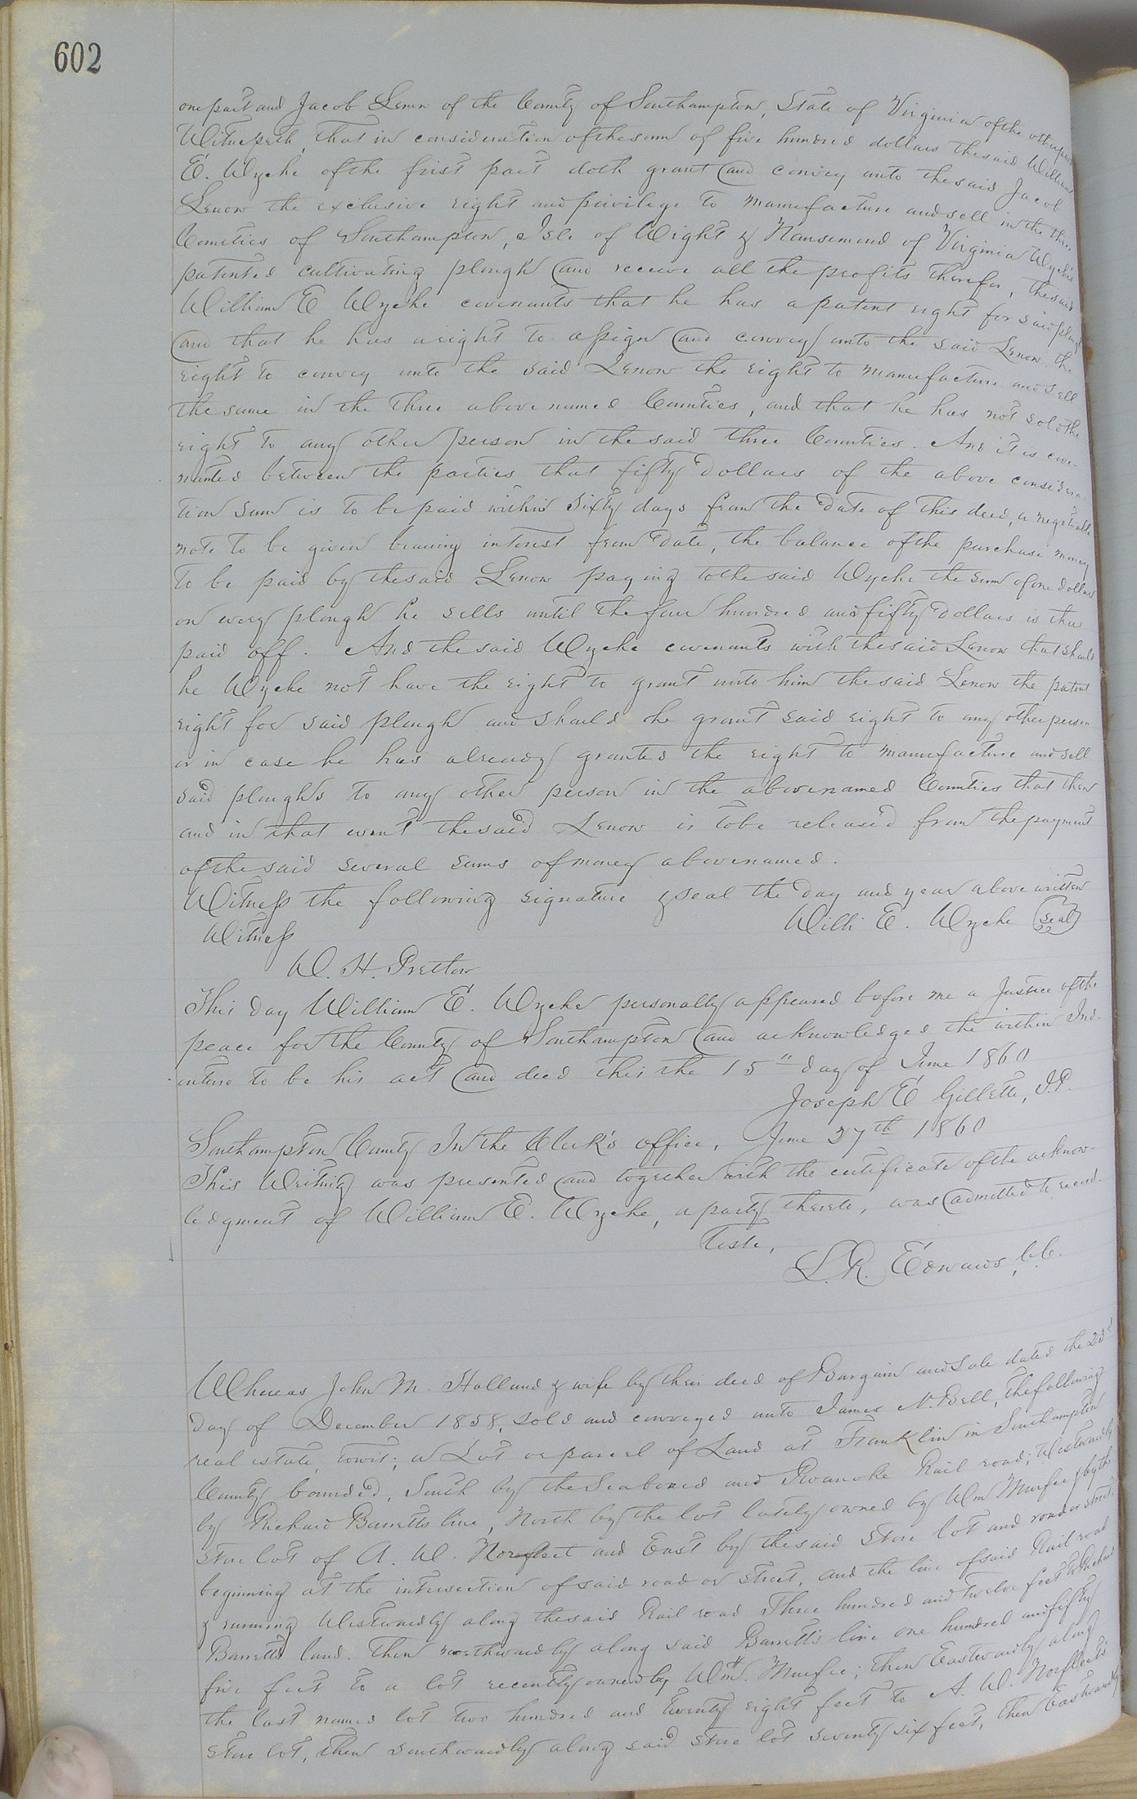 602
one part and Jacob Lenow of the County of Southampton, State of Virginia of the other part
Witnesseth, that in consideration of the sum of five hundred dollars the said William
E. Wyche of the first part doth grant and convey unto the said Jacob
Lenow the exclusive right and privilege to manufacture and sell in the three
Counties of Southampton, Isle of Wight & Nansemond of Virginia Wyche's
patented cultivating plough and receive all the profits therefor, the said
William E Wyche covenants that he has a patent right for said plough
and that he has a right to assign and convey unto the said Lenow the
right to convey unto the said Lenow the right to manufacture and sell
the same in the three above named Counties, and that he has not sold the
right to any other person in the said three Counties. And it is cove-
nanted between the parties that fifty dollars of the above considera-
tion sum is to be paid within sixty days from the date of this deed, a negotiable
note to be given bearing interest from date, the balance of the purchase money
to be paid by the said Lenow paying to the said Wyche the sum of one dollar
on every plough he sells until the four hundred and fifty dollars is thus
paid off. And the said Wyche covenants with the said Lenow that should
he Wyche not have the right to grant unto him the said Lenow the patent
right for said plough and should he grant said right to any other person
or in case he has already granted the right to manufacture and sell
said ploughs to any other person in the above named Counties that then
and in that event the said Lenow is to be releas'd from the payment
of the said several sums of money above named.
Witness the following signature & seal the day and year above written
Witness Willi E. Wyche (Seal)
W. H. Pretlow
This day William E. Wyche personally appeared before me a Justice of the
peace for the County of Southampton and acknowledged the within Ind-
enture to be his act and deed this the 15th day of June 1860
Joseph E Gillette, J.P.
Southampton County In the Clerk's office, June 27th 1860
This Writing was presented and together with the certificate of the acknow-
ledgment of William E. Wyche, a party thereto, was admitted to record.
Teste,
L. R. Edwards, C.C.
Whereas John M. Holland & wife by their deed of Bargain and Sale dated the 23d
day of December 1858, sold and conveyed unto James N. Bell, the following
real estate, towit; a Lot or parcel of Land at Franklin in Southampton
County bounded, South by the Seaboard and Roanoke Rail road; Westwardly
by Richard Barretts line, North by the lot lately owned by Wm Murfee & by the
store lot of A. W. Norfleet and East by the said store lot and road or street,
beginning at the intersection of said road or street, and the line of said Rail road
& running Westwardly along the said Rail road Three hundred and twelve feet to Richard
Barretts land. Then northwardly along said Barretts line one hundred and fifty
five feet to a lot recently owned by Wm. Murfee; then Eastwardly along
the last named lot two hundred and twenty eight feet to A. W. Norfleets
store lot, then southwardly along said store lot seventy six feet, then Eastwardly